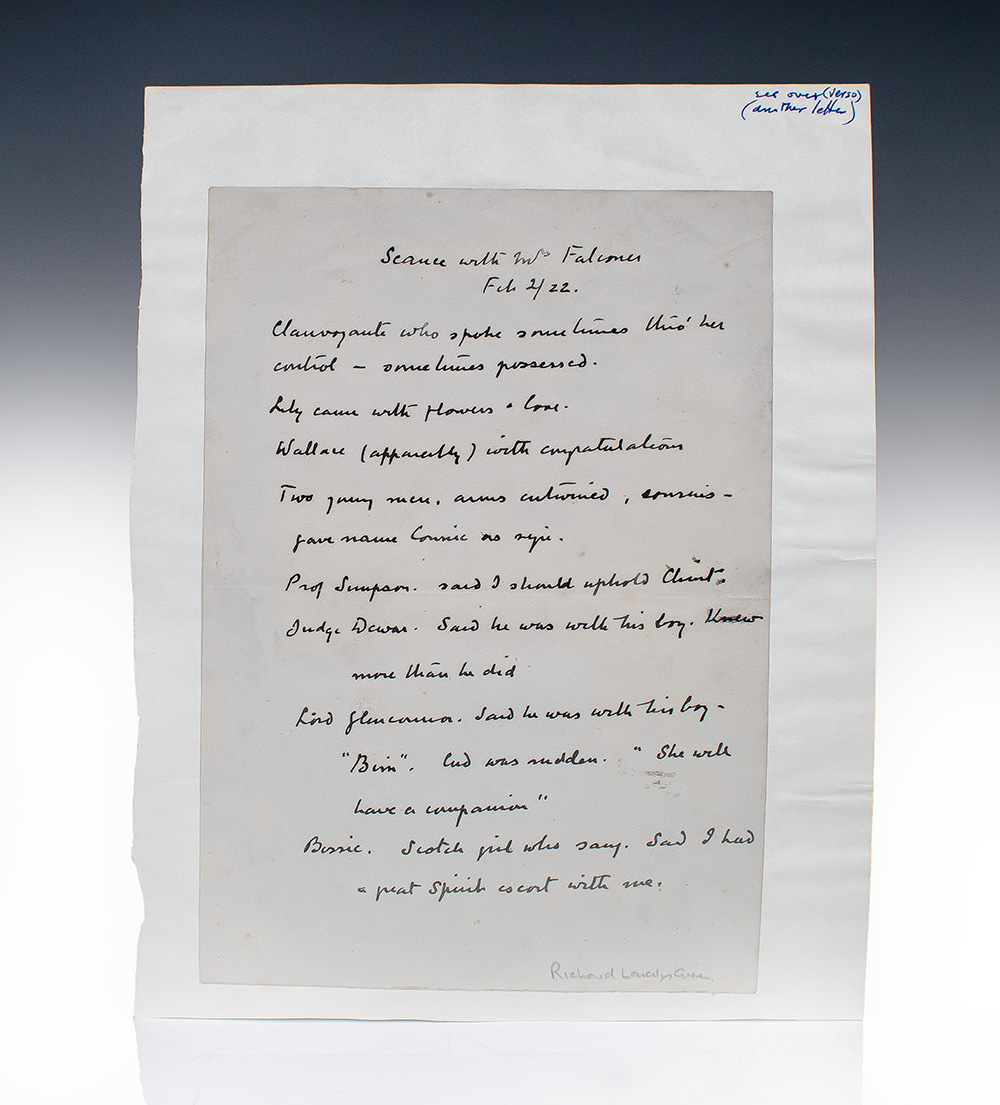 see over (verso)
(another letter)
Seance with Mrs Falconer
Feb 2/22.
Clairvoyante who spoke sometimes thro' her
control – sometimes possessed.
Lily came with flowers & love.
Wallace (apparently) with congratulations
Two young men, arms entwined, cousins –
gave name Connie as sign.
Prof Simpson. said I should uphold Christ.
Judge Dewar. Said he was with his boy. Knew
more than he did
Lord Glenconnor. Said he was with his boy –
"Bim". End was sudden. " She will
have a companion"
Bessie. Scotch girl who sang. Said I had
a great Spirit escort with me.
Richard Lancelyn Green